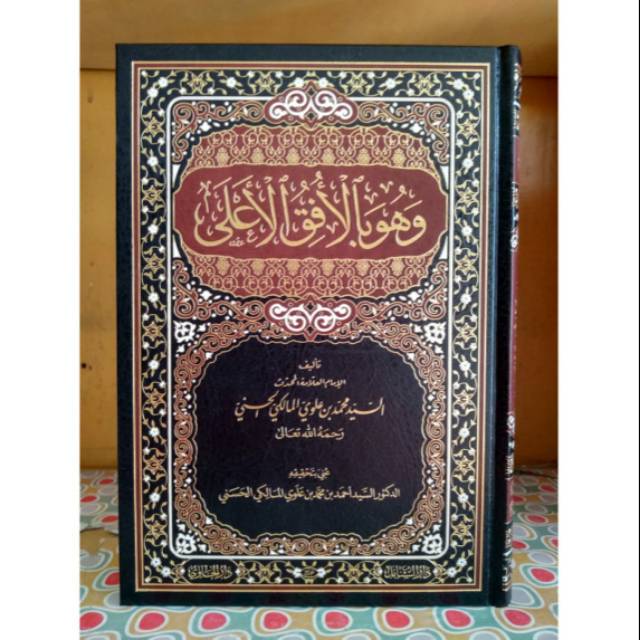 وَهُوَ بِالْأُفُقِ الْأَعْلَىٰ
تأليف
الإمام العلامة المحدث
السيد محمد بن علوي المالكي الحسني
رحمه الله تعالى
عني بتحقيقه
الدكتور السيد أحمد بن محمد بن علوي المالكي الحسني